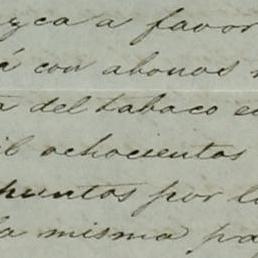 yca a favor
á con abonos
a del tabaco e
il ochocientos
puntos por l
la misma pa